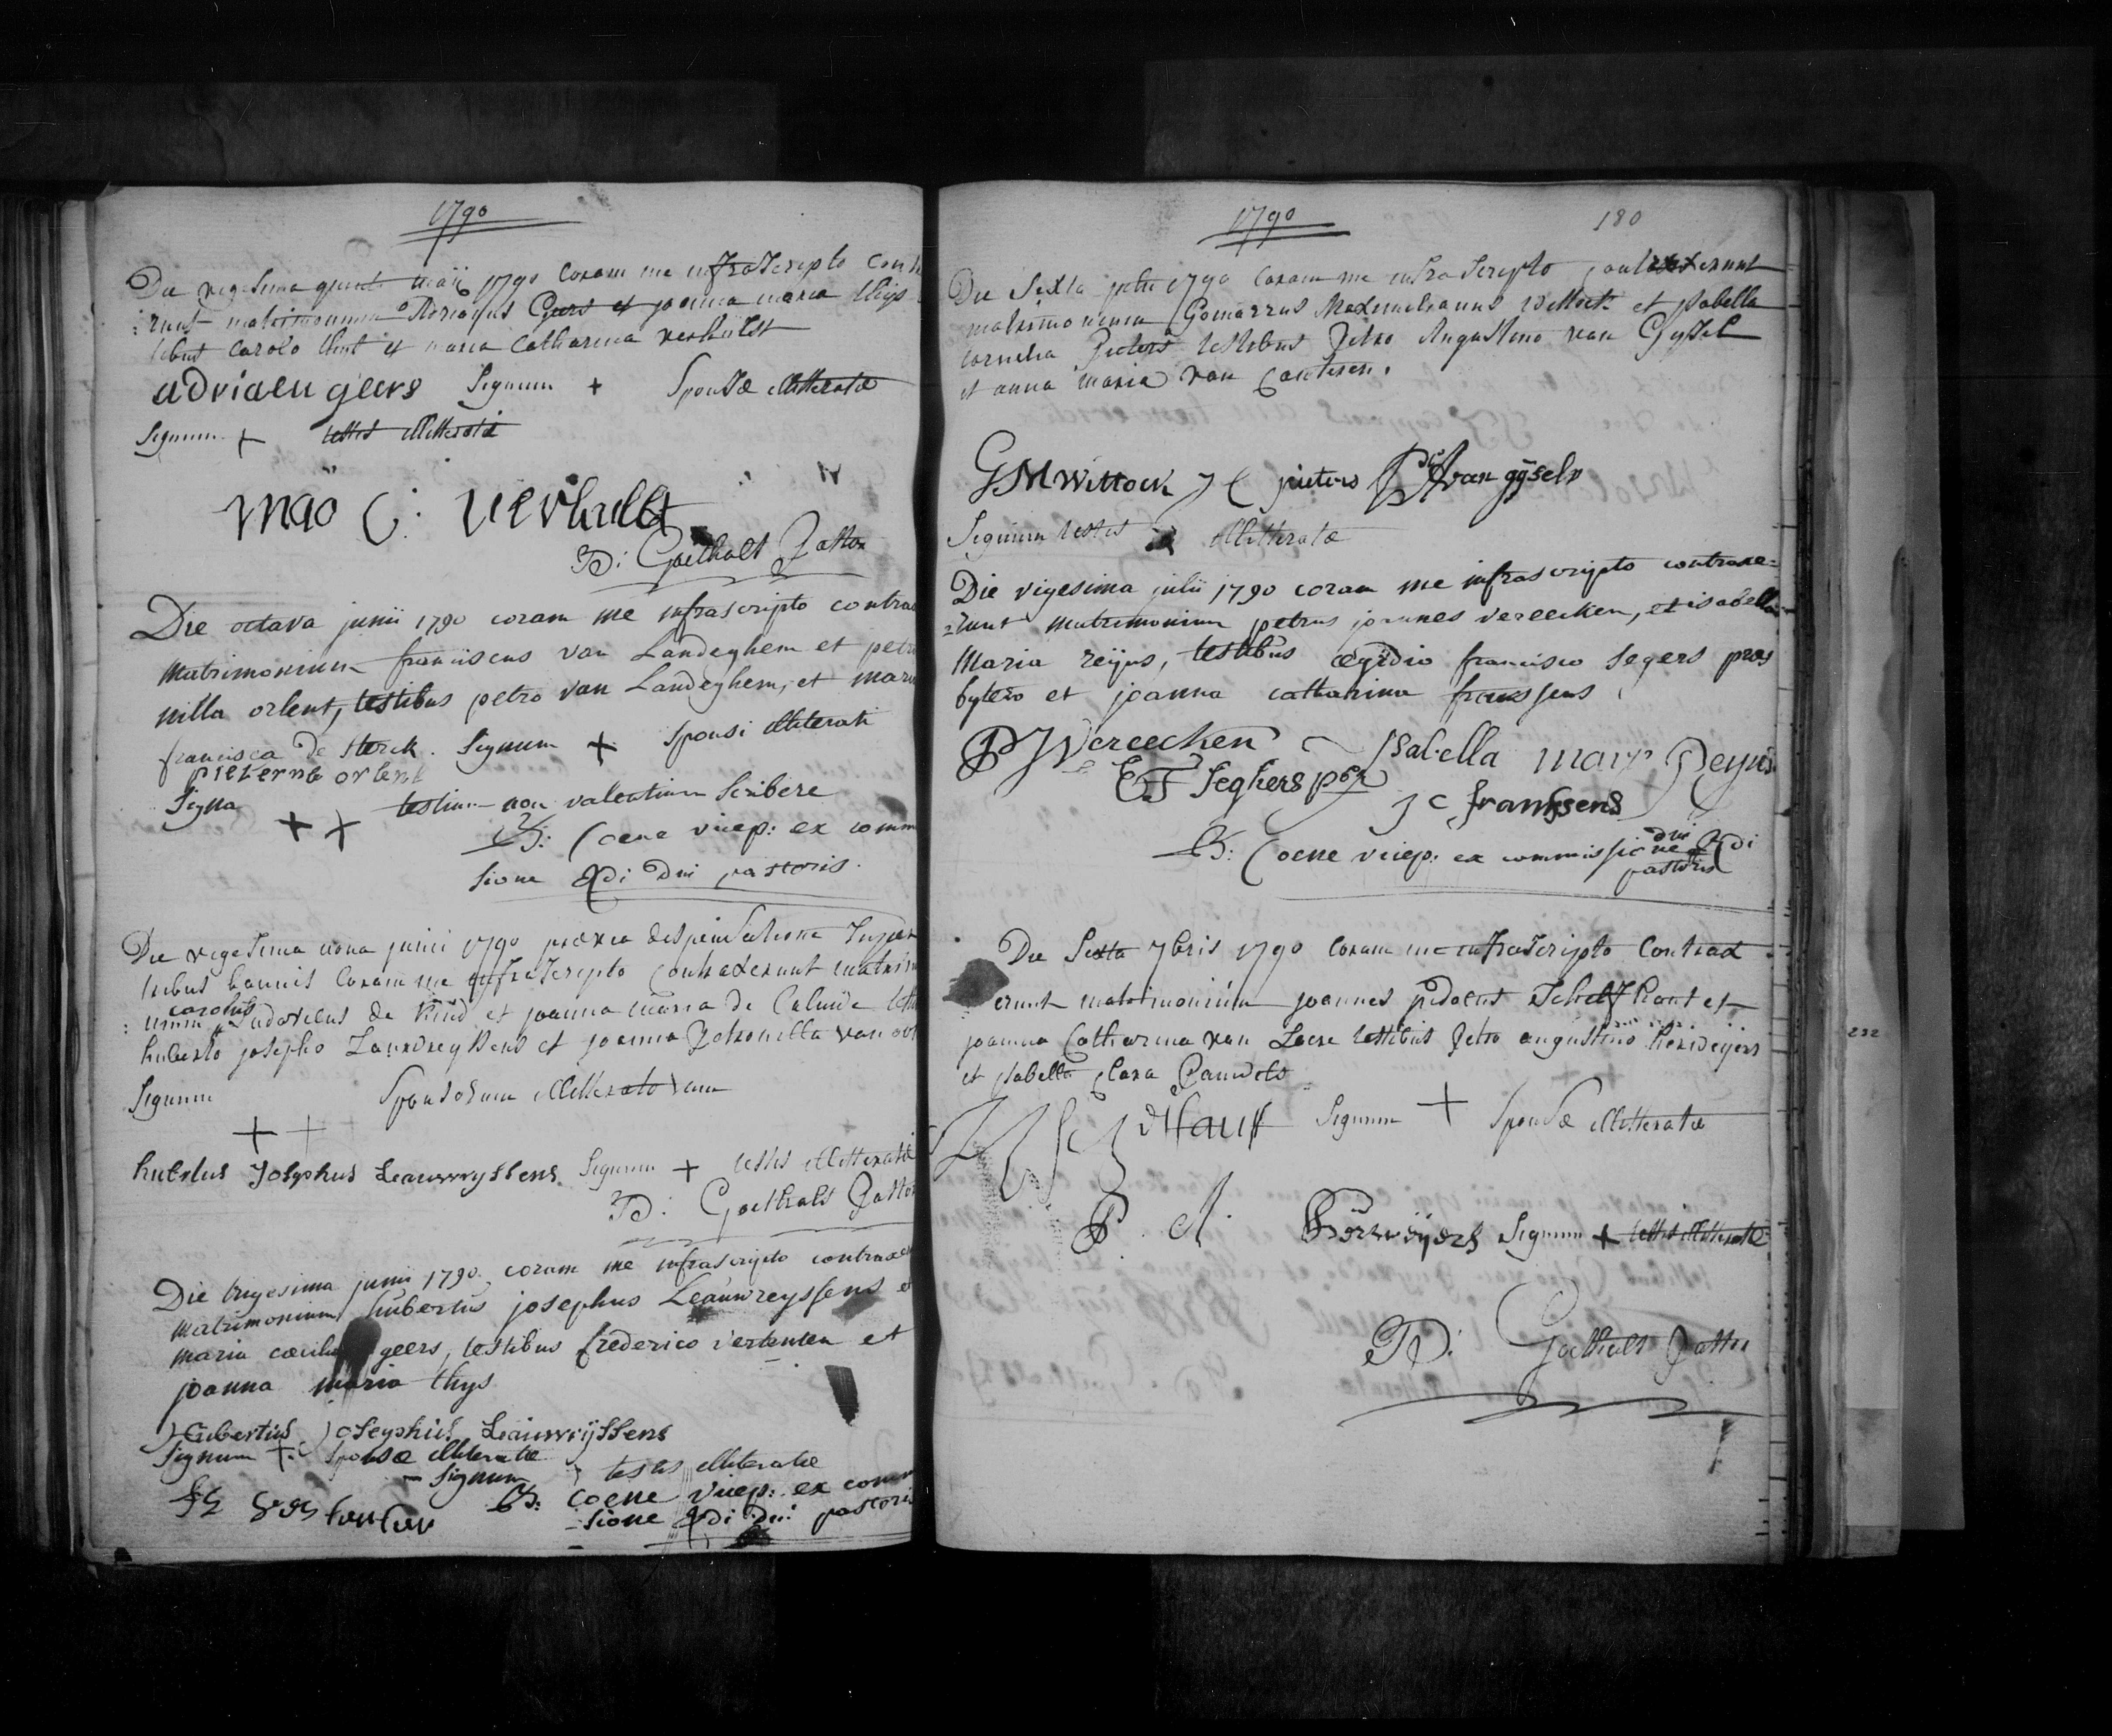 1790
Die vigesima quinta maii 1790 coram me infrascripto cont
:runt matrimonium Adrianus Geers et joanna maria thijs
tibus carolo thint et maria Catharina verhulst
adriaen geers Signum + Sponsæ illitteratæ
Signum + testis illitterati
maria C: verhulst
D: Goethals Pastor
Die octava junii 1790 coram me infrascripto contrax
matrimonium franciscus van Landeghem et petro
nilla orlent, testibus petro van Landeghem, et maria
francisca De Sterck. Signum + Sponsi illiterati
pieterne orlent
Signa + + testium non valentium scribere
B: Coene vicep: ex comm
sione Rdi Dni pastoris.
Die vigesima nona junii 1790 prævia dispensatione super
tribus bannis coram me infrascripto contraxerunt matrim
carolus
:nium Ludovicus de Kind et joanna maria de Caluwe test
huberto josepho Lauwreyssens et joanna Petronilla van
Signum Sponsorum illitteratorum
+ +
hubrtus Josephus Leauwryssens Signum + testis illitteratæ
D: Goethals Pastor
Die trigesima junii 1790. coram me infrascripto contraxer
matrimonium hubertus josephus Leauwreyssens e
maria cæcilia geers, testibus frederico vertenten et
joanna maria thys
Hubertius Josephus Leauwrijssens
Signum + Sponsæ illiteratæ
- Signum testis illiteratæ
B: Coene vicep: ex comm
-sione Rdi Dni pastoris
1790 180
Die Sexta julii 1790 coram me infrascripto contraxerunt
matrimonium Gomarrus Maximilianus Wittock et Isabella
cornelia Pieters testibus Petro Augustino van Gysel
et anna maria van Canteren.
GM Wittock J C pieters PA van gÿseln
Signum testis illitteratæ
Die vigesima julii 1790 coram me infrascripto contraxe=
=runt matrimonium petrus joannes vereecken, et isabella
Maria reijns, testibus ægidio francisco segers pres
bytero et joanna catharina franssens
PJ Vereecken Isabella mary Reyns
E F Seghers pbr
J C franssens
B: Coene vicep: ex commissione Rdi
dni
pastoris
Die Sexta 7bris 1790 coram me infrascripto contrax
erunt matrimonium joannes judocus Schelfhaut et
joanna Catharina van Laere testibus Petro augustino
et Isabella Clara Pauwels
Signum + Sponsæ illitteratæ
P. A. Signum + testis illitteratæ
D: Goethals Pastor
232